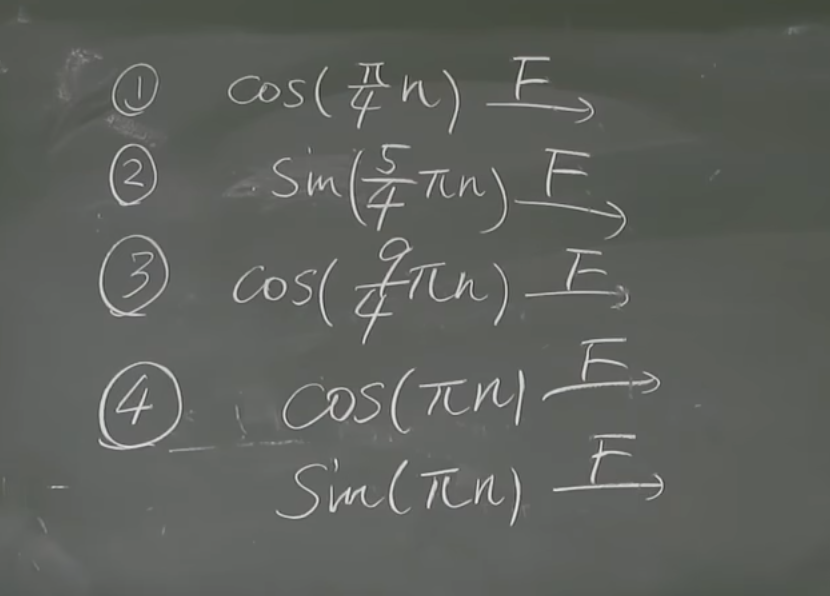 ① cos(π/4 n) F→
② sin(5/4 πn) F→
③ cos(9/4 πn) F→
④ cos(πn) F→
sin(πn) F→